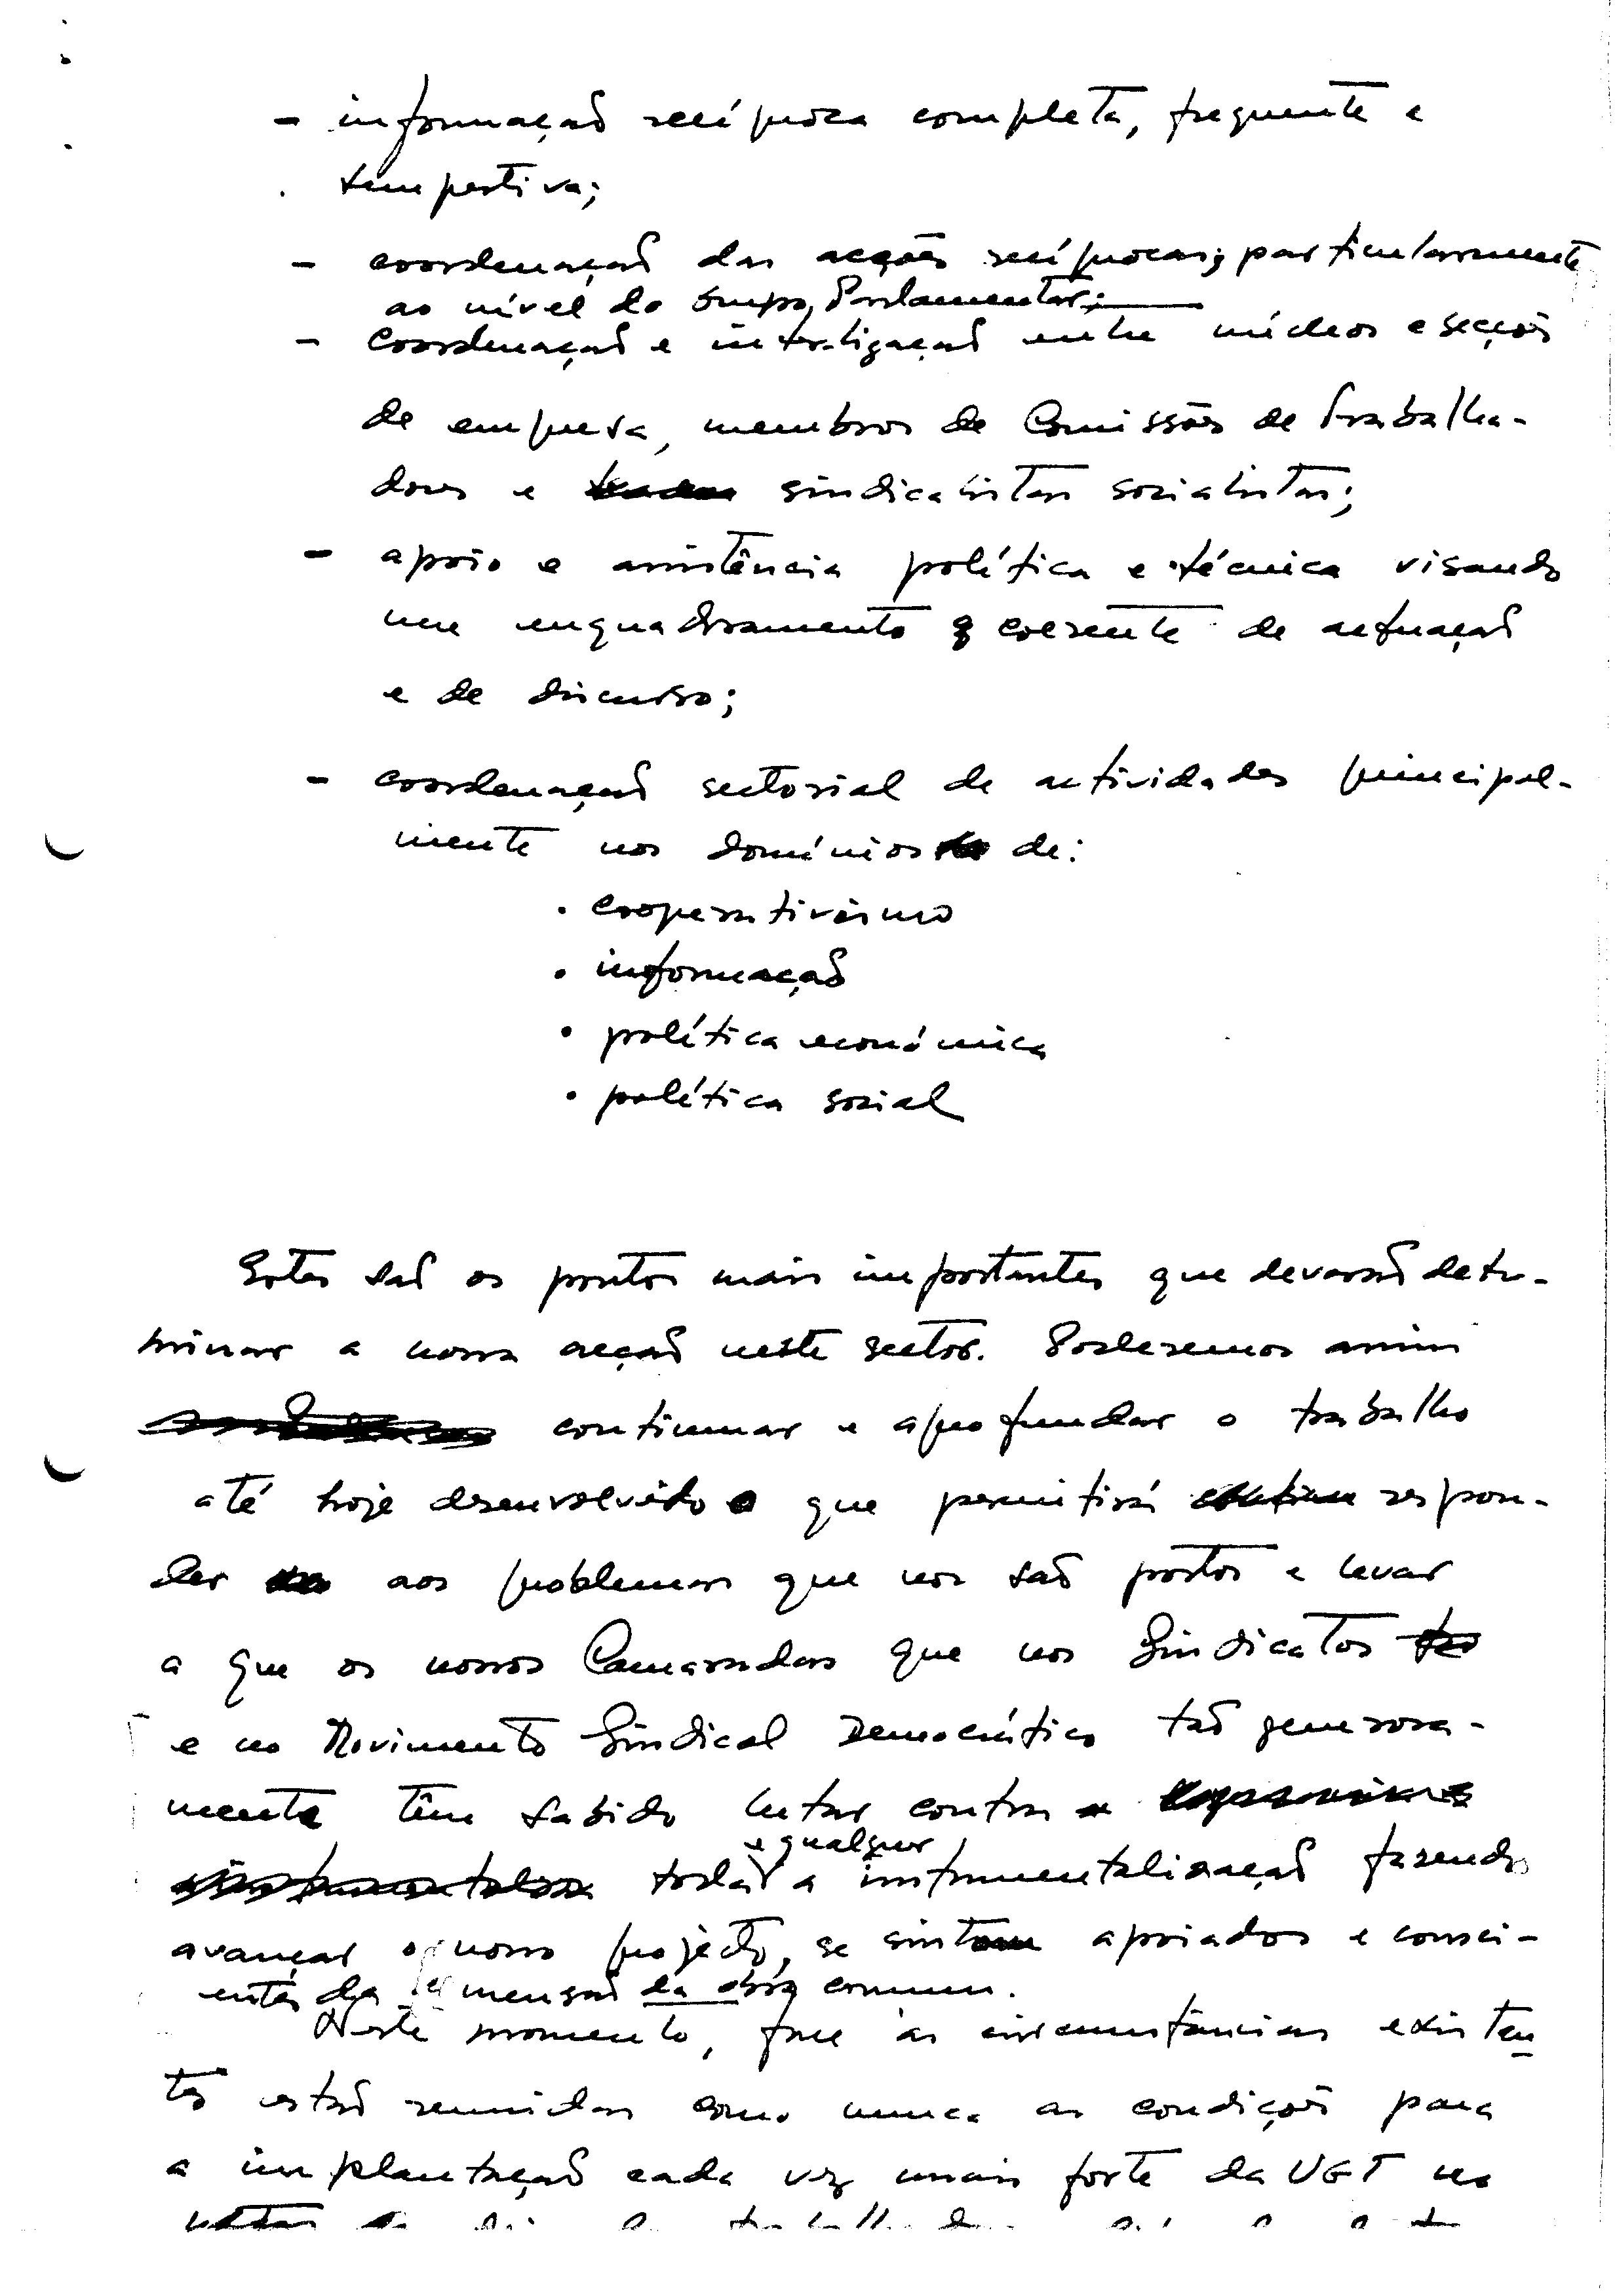 - informação recíproca completa, frequente e
tempestiva;
- coordenação das acções recíprocas, particularmente
ao nível do Grupo Parlamentar;
- coordenação e interligação entre núcleos e secções
de empresa, membros de Comissões de Trabalha-
dores e sindicalistas socialistas;
- apoio e assistência política e técnica visando
um enquadramento coerente de actuação
e de discurso;
- coordenação sectorial de actividades principal-
mente nos domínios de:
· cooperativismo
· informação
· política económica
· política social
Estes são os pontos mais importantes que deverão deter-
minar a nossa acção neste sector. Poderemos assim
continuar e aprofundar o trabalho
até hoje desenvolvido que permitirá respon-
der aos problemas que nos são postos e levar
a que os nossos Camaradas que nos Sindicatos
e no Movimento Sindical Democrático tão generosa-
mente têm sabido lutar contra
e qualquer
toda a instrumentalização fazendo
avançar o nosso projecto, se sintam apoiados e consci-
entes da dimensão da obra comum.
Neste momento, face às circunstâncias existen-
tes estão reunidas como nunca as condições para
a implantação cada vez mais forte da UGT no